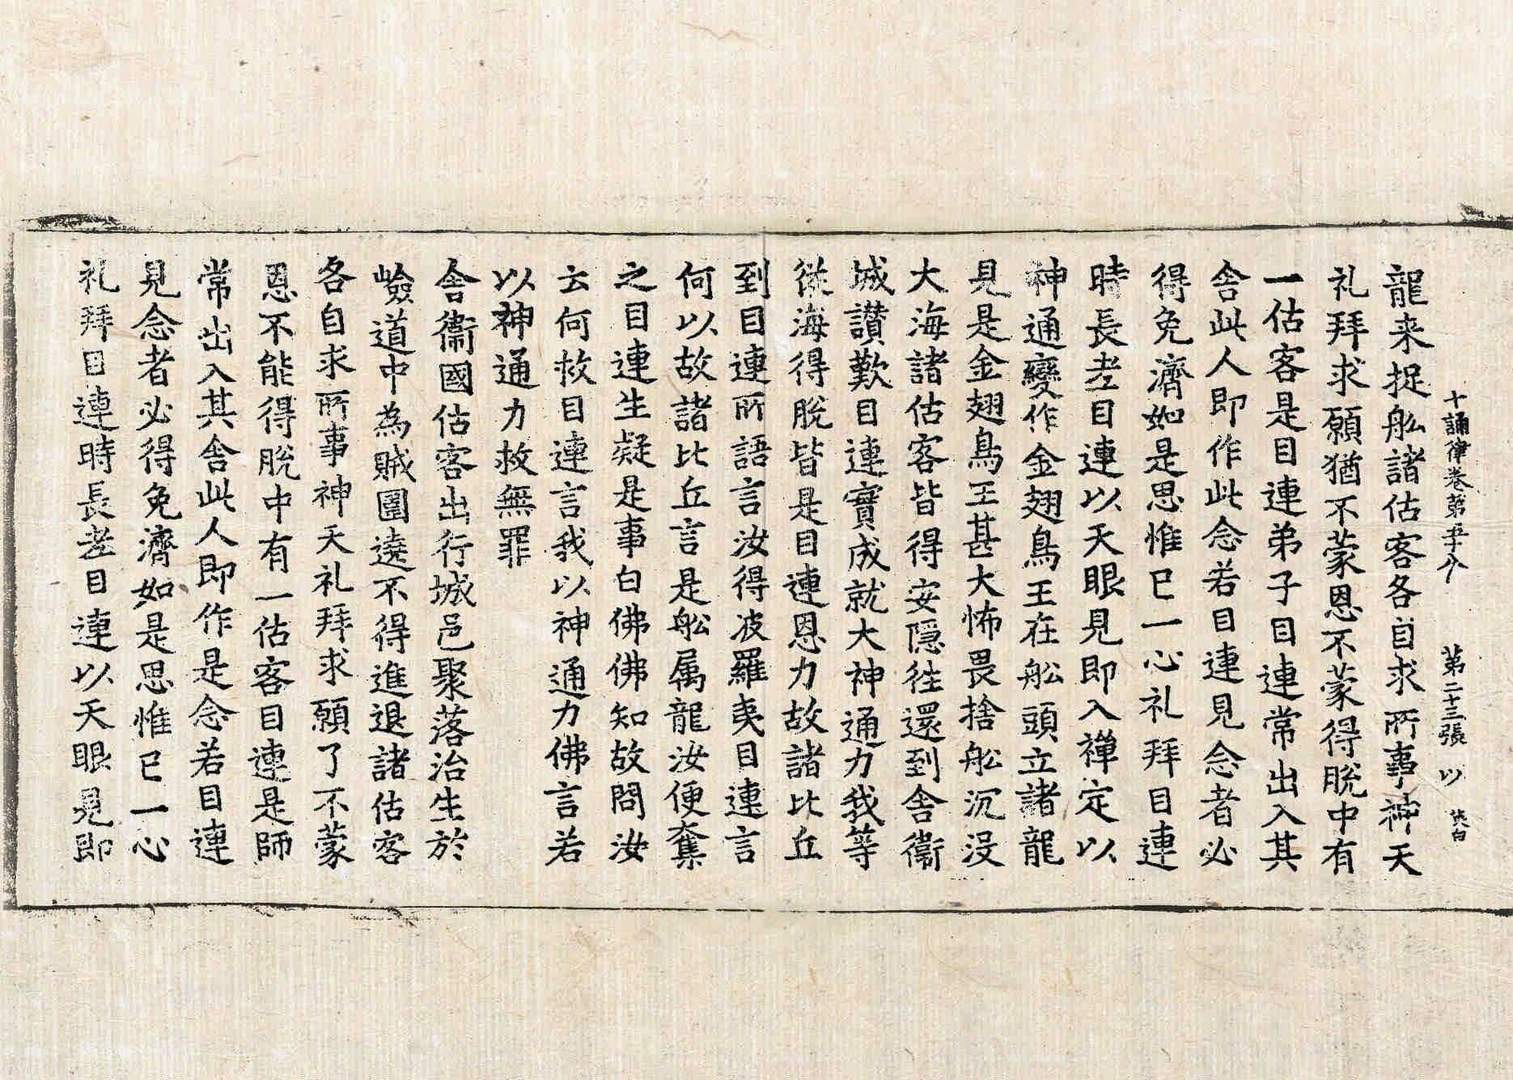 十誦律卷第五十八 第二十三張 以
龍来捉舩諸估客各自求所事神天
礼拜求願猶不蒙恩不蒙得脫中有
一估客是目連弟子目連常出入其
舍此人即作此念若目連見念者必
得免濟如是思惟已一心礼拜目連
時長老目連以天眼見即入禪定以
神通變作金翅鳥王在舩頭立諸龍
見是金翅鳥王甚大怖畏捨舩沉没
大海諸估客皆得安隱往還到舍衛
城讃歎目連實成就大神通力我等
從海得脫皆是目連恩力故諸比丘
到目連所語言汝得波羅夷目連言
何以故諸比丘言是舩属龍汝便奪
之目連生疑是事白佛佛知故問汝
云何救目連言我以神通力佛言若
以神通力救無罪
舍衛國估客出行城邑聚落治生於
嶮道中為賊圍遶不得進退諸估客
各自求所事神天礼拜求願了不蒙
恩不能得脫中有一估客目連是師
常出入其舍此人即作是念若目連
見念者必得免濟如是思惟已一心
礼拜目連時長老目連以天眼見即